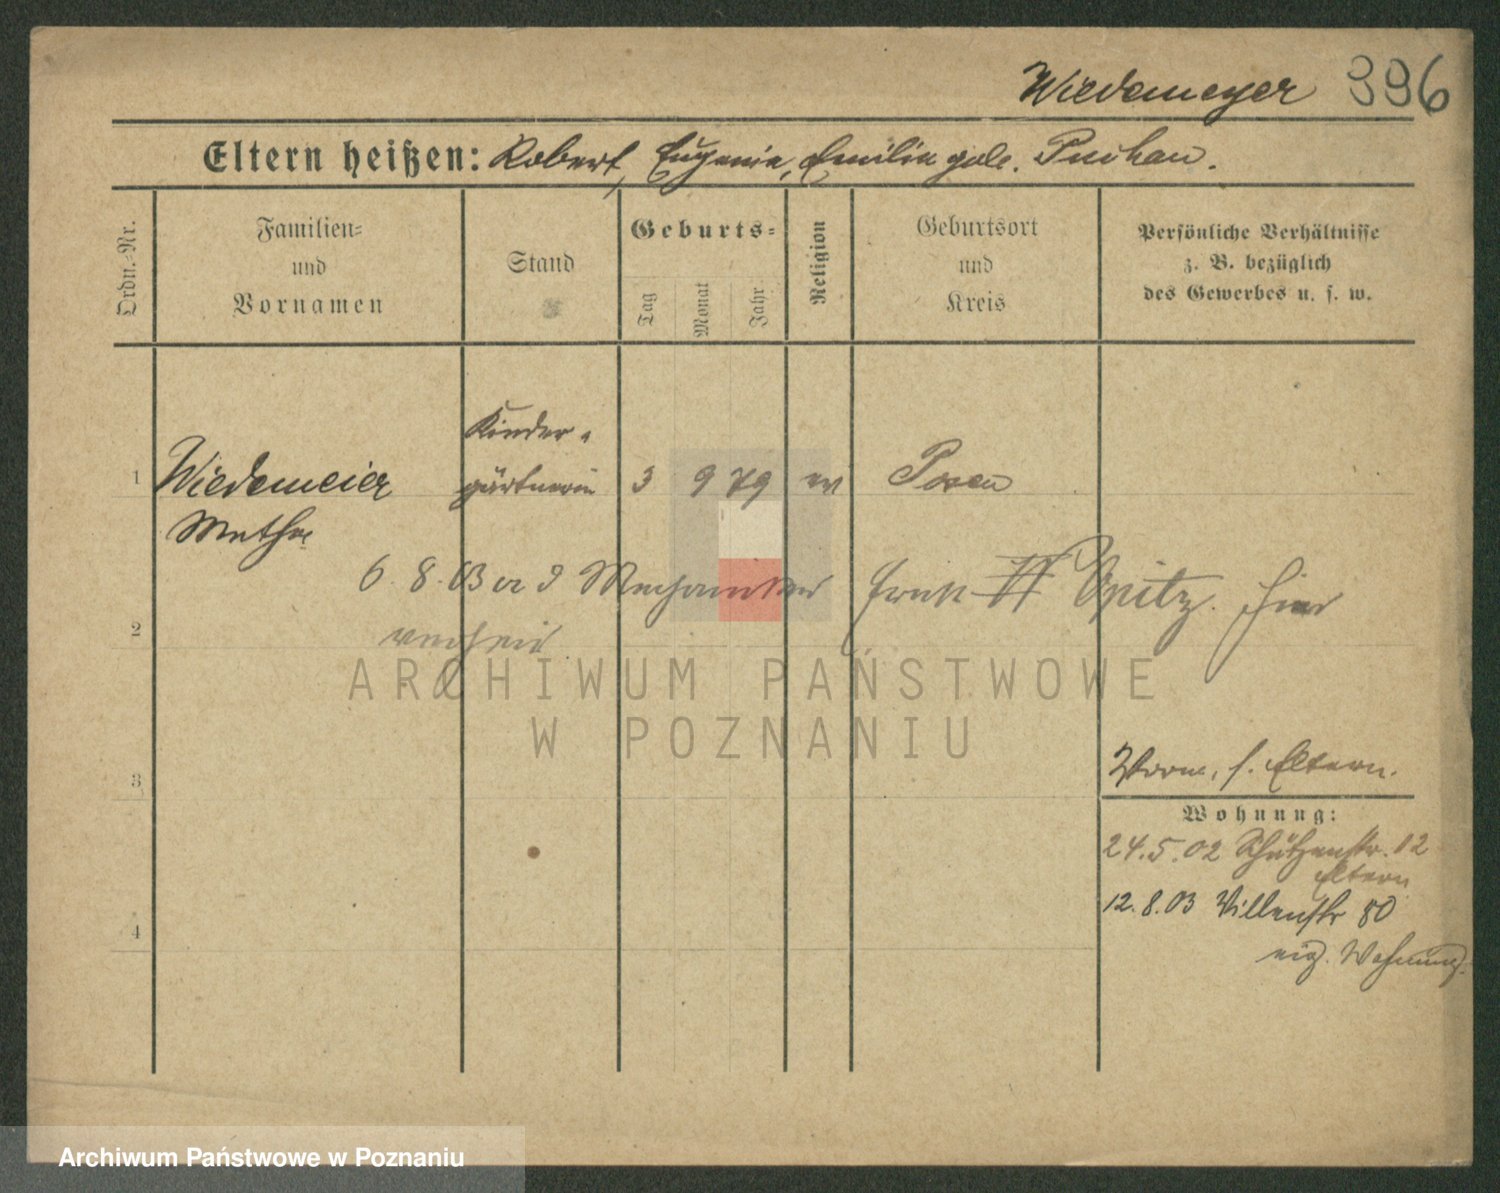 Wiedemeyer 396
Eltern heißen: Robert, Eugenie, Emilie geb.
Ordn.-Nr.
Familien- und Vornamen
Stand
Geburts-
Tag
Monat
Jahr
Religion
Geburtsort und Kreis
Persönliche Verhältnisse z. B. bezüglich des Gewerbes u. s. w.
Kinder-
1 Wiedemeier gärtnerin 3 9 79 ev Posen
6. 8. 03 Mechaniker Opitz. hier
2 verheir
ARCHIWUM PAŃSTWOWE
W POZNANIU
3 s. Eltern.
Wohnung:
24.5.02 Schützenstr. 12
Eltern
12.8.03 Villenstr
4
eig. Wohnung.
Archiwum Państwowe w Poznaniu